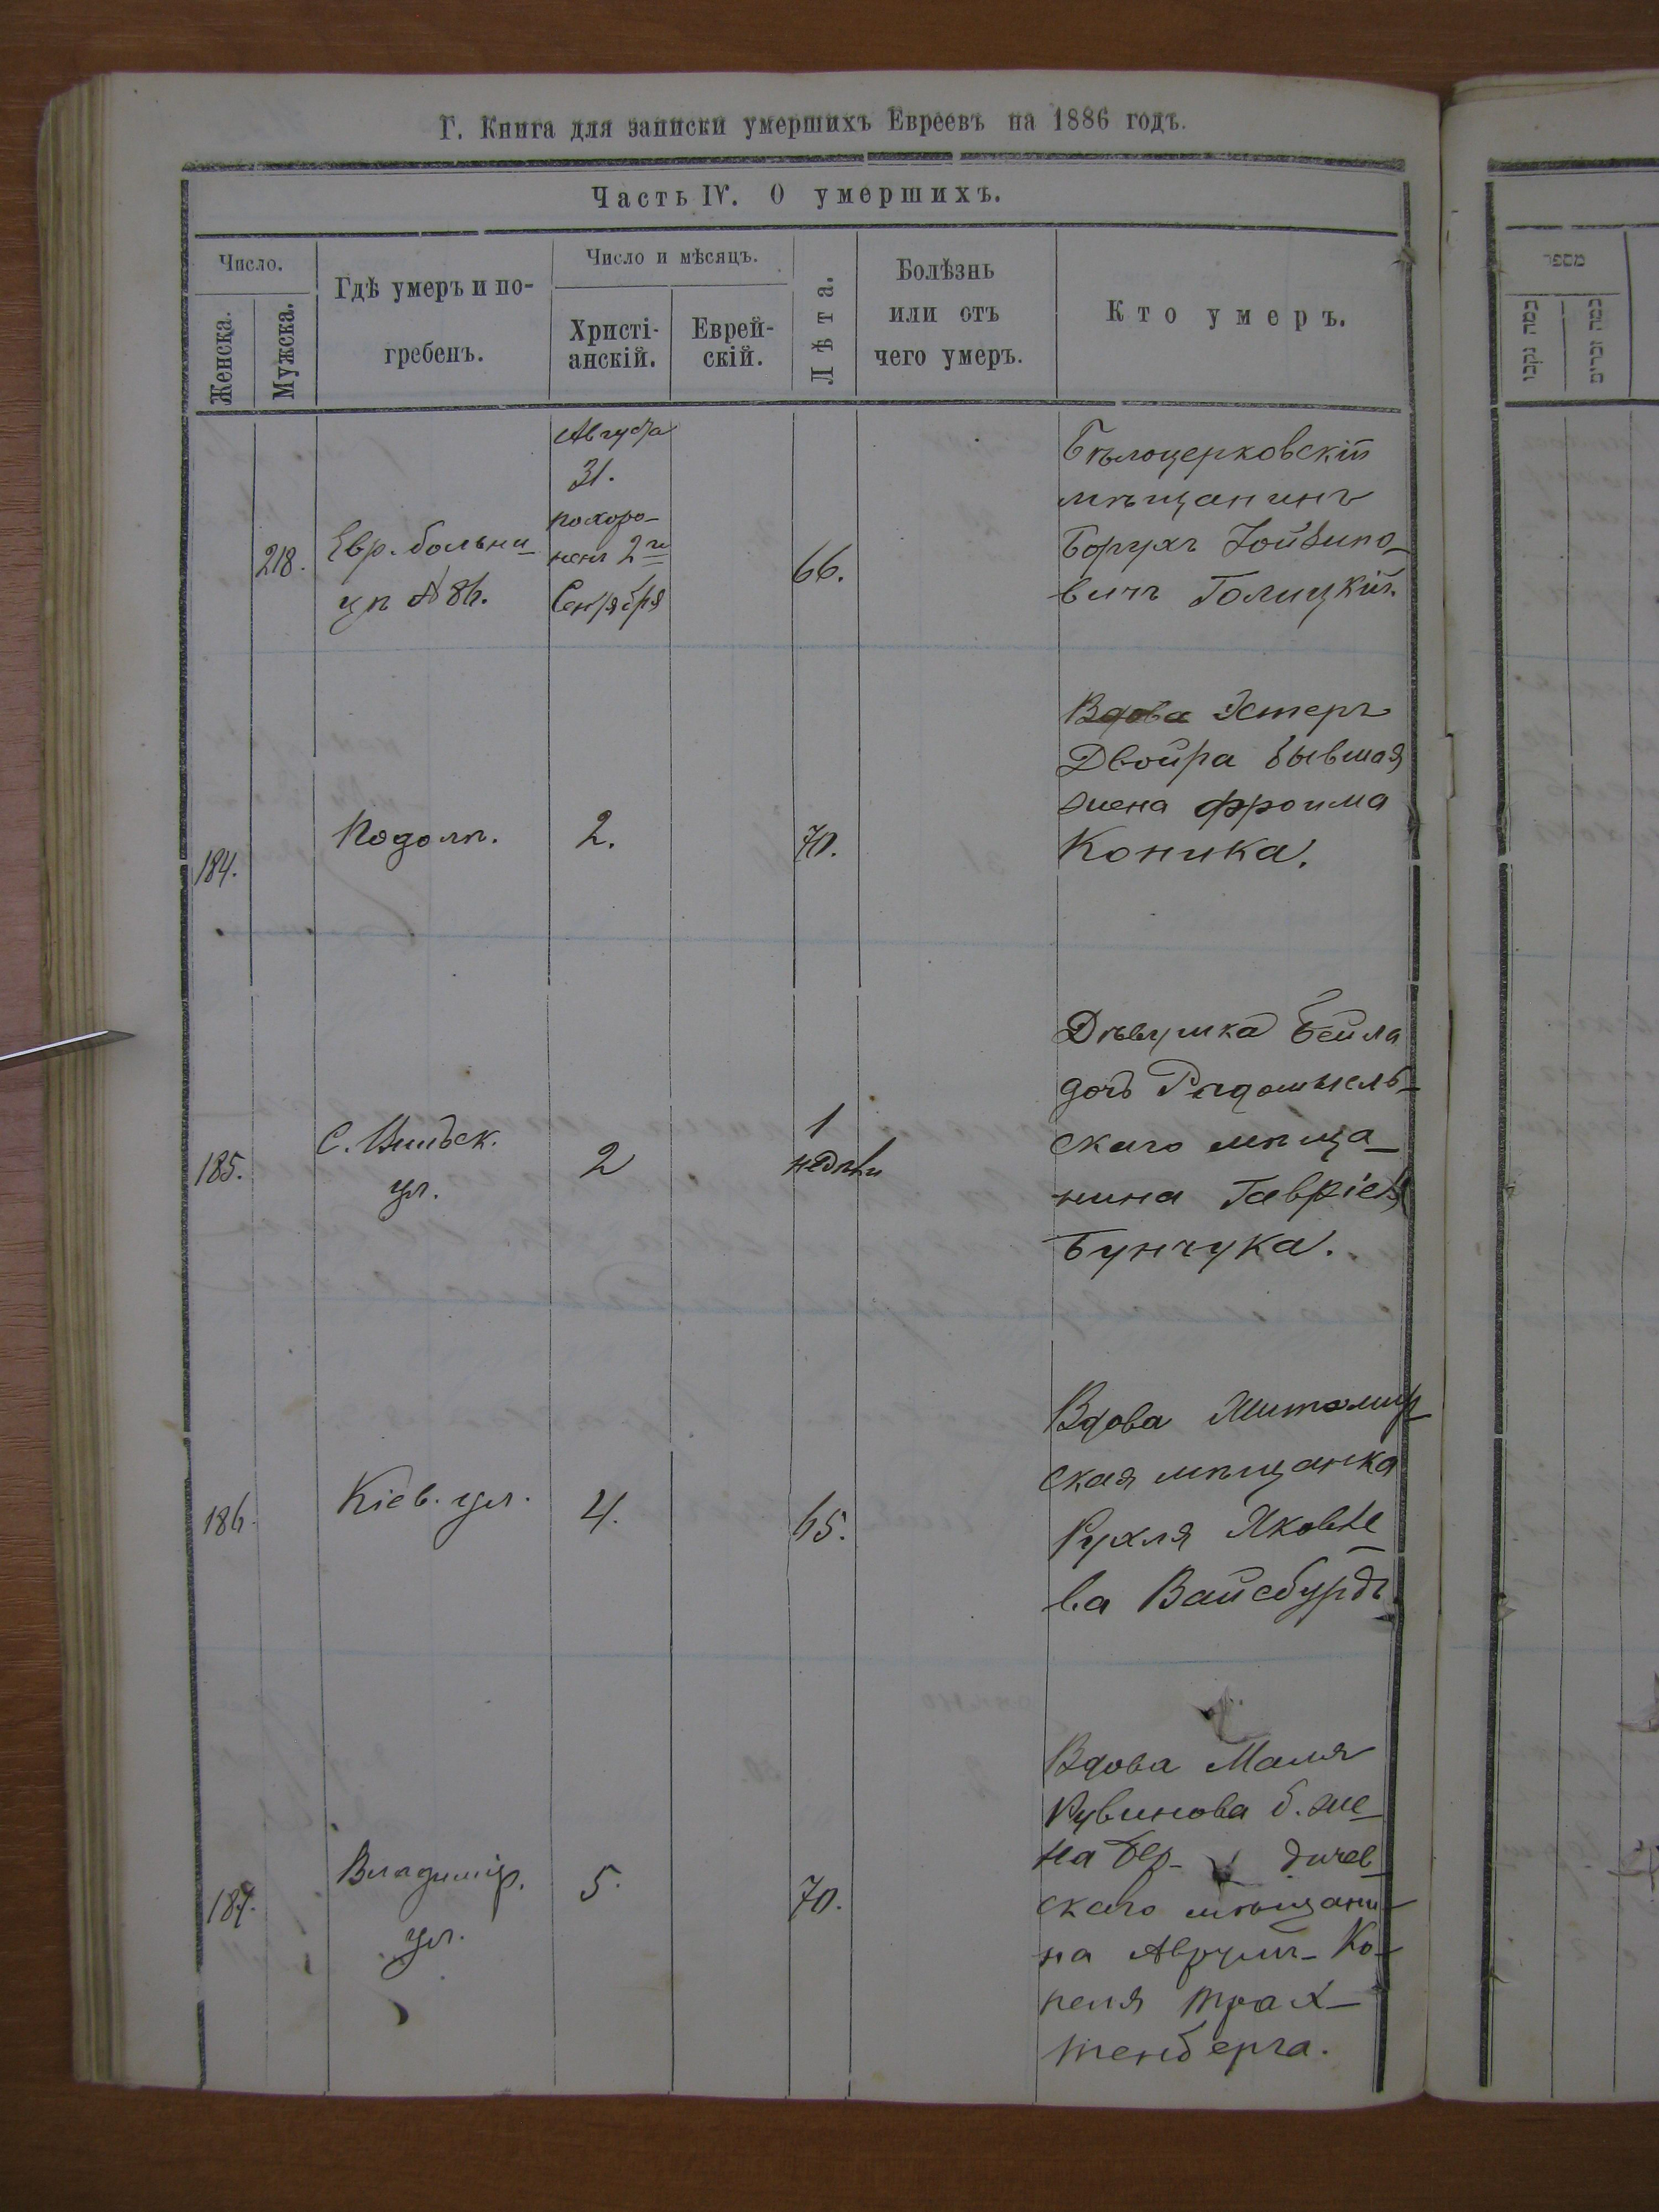 Г. Книга для записки умершихъ Евреевъ на 1886 годъ.
Часть IV. О умершихъ.
Число.
Женска.
Мужска.
Гдѣ умеръ и по-
гребенъ.
Число и мѣсяцъ.
Христі-
анскій.
Еврей-
скій.
Лѣта.
Болѣзнь
или отъ
чего умеръ.
Кто умеръ.
218.
Евр. больни-
цѣ № 86.
Августа
31.
похоро-
ненъ 2го
Сентября
66.
Бѣлоцерковскій
мѣщанинъ
Борухъ
вичъ Голицкій.
184.
Подолъ.
2.
70.
Вдова Эстеръ
Двойра бывшая
жена Фроима
Коника.
185.
С. Вильск.
ул.
2
1
недѣли
Дѣвушка Бейла
дочь Радомысль-
скаго мѣща-
нина Гавріеля
Бунчука.
186.
Кіев. ул.
4.
65.
Вдова Житомир-
ская мѣщанка
Рухля Яковле-
ва Вайсбурдъ
187.
Владимір.
ул.
5.
70.
Вдова Маля
Рувинова б. же-
на Бер- дичев-
скаго мѣщани-
на Аврумъ-Ко-
пеля Трах-
тенберга.
מספר